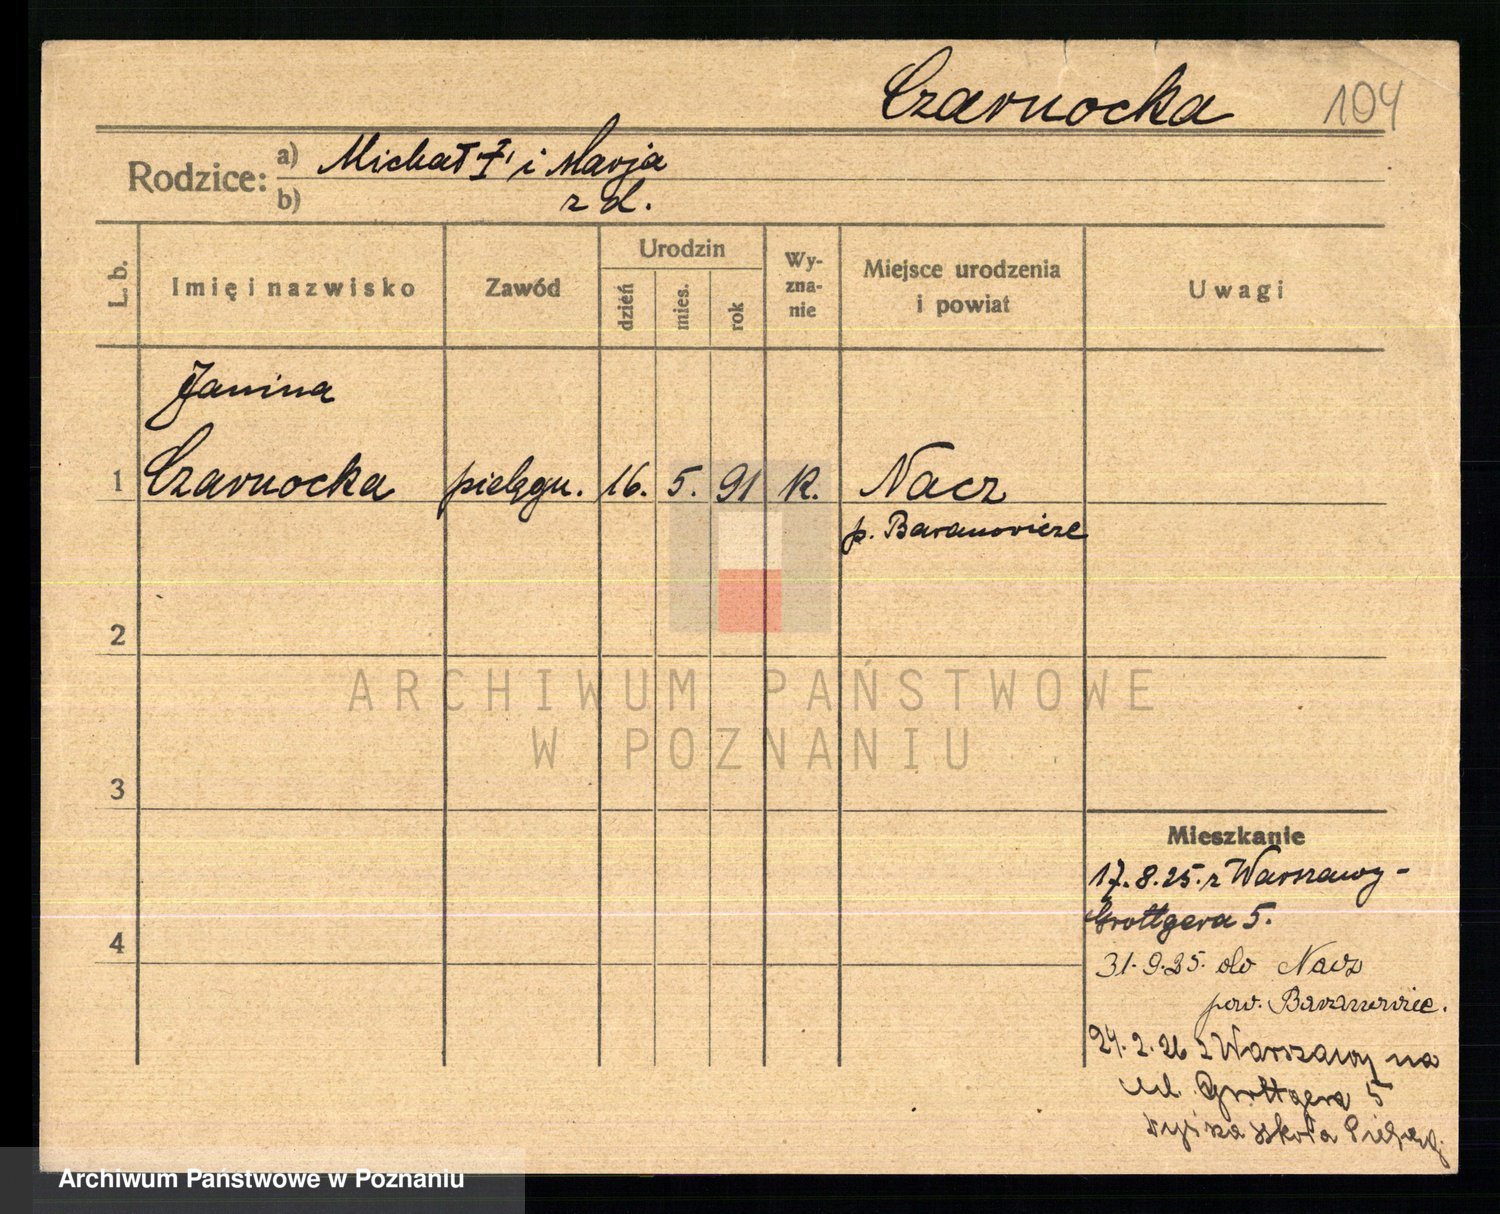 Czarnocka 104
Rodzice: a) Michał i Marja
b) z d.
L. b.
Imię i nazwisko
Zawód
Urodzin
dzień
mies.
rok
Wy-
zna-
nie
Miejsce urodzenia
i powiat
Uwagi
Janina
1 Czarnocka pielęgn. 16. 5. 91 K. Nacz
p. Baranowicze
2
ARCHIWUM PAŃSTWOWE
W POZNANIU
3
Mieszkanie
17.8.25. z Warszawy -
Grottgera 5.
4
31.9.25. do Nacz
pow. Baranowice.
24.2.26 z Warszawy na
ul. Grottgera 5
szkoła
Archiwum Państwowe w Poznaniu